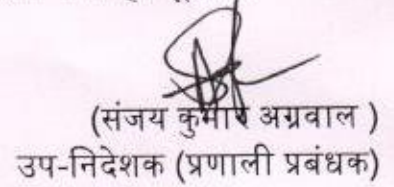 (संजय कुमार अग्रवाल )
उप-निदेशक (प्रणाली प्रबंधक)